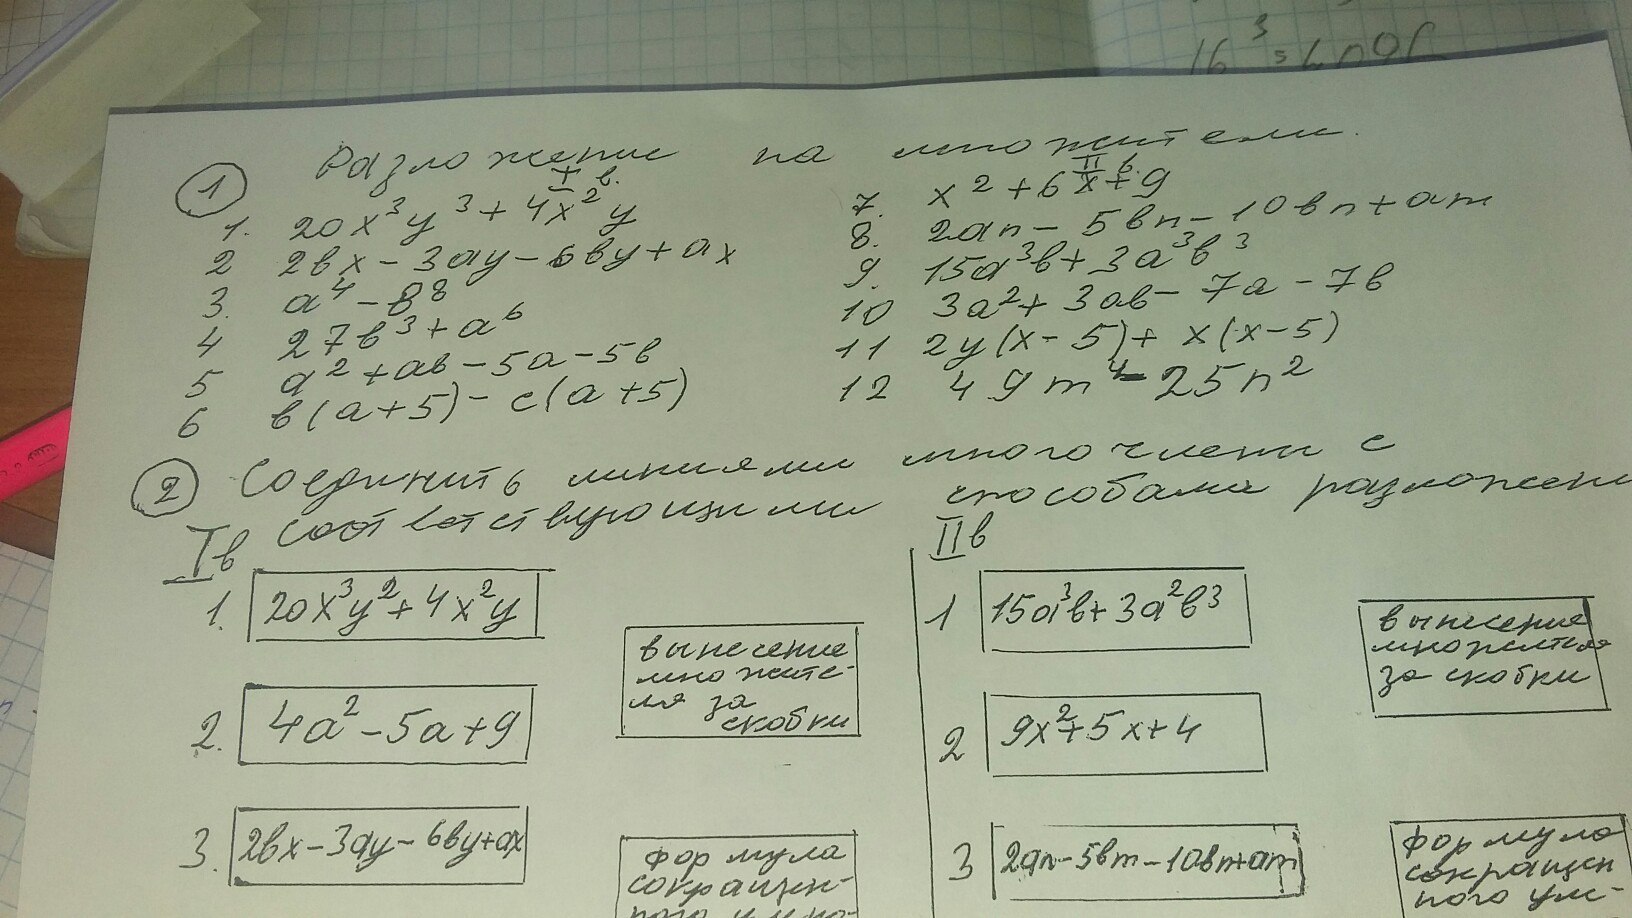 16³ = 4096
Разложение на множители.
1
I в.
II в.
1. 20x³y³ + 4x²y
2 2вx - 3ay - 6вy + ax
3. a⁴ - в⁸
4 27в³ + a⁶
5 a² + aв - 5a - 5в
6 в(a + 5) - c(a + 5)
7. x² + 6x + 9
8. 2an - 5вn - 10вn + am
9. 15a³в + 3a³в³
10 3a² + 3aв - 7a - 7в
11 2y(x - 5) + x(x - 5)
12 49m⁴ - 25n²
2 Соединить линиями многочлены с
соответствующими способами разложени
I в
1. 20x³y² + 4x²y
2. 4a² - 5a + 9
3. 2вx - 3ay - 6вy + ax
вынесение
множите-
ля за
скобки
формула
сокращен-
ного умно-
II в
1 15a³в + 3a²в³
2 9x² + 5x + 4
3 2an - 5вm - 10вn + am
вынесение
множителя
за скобки
формула
сокращен
ного ум-